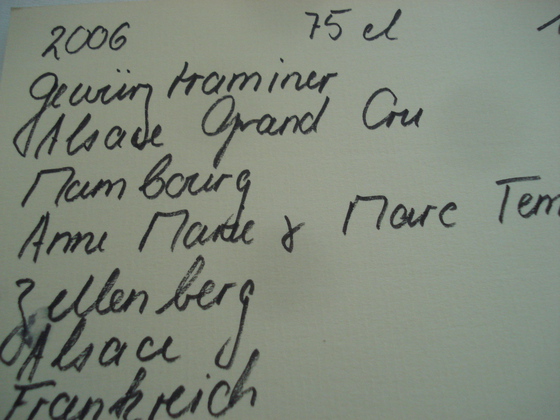 2006 75 cl
Gewürztraminer
Alsace Grand Cru
Mambourg
Anne Marie & Marc Tem
Zellenberg
Alsace
Frankreich